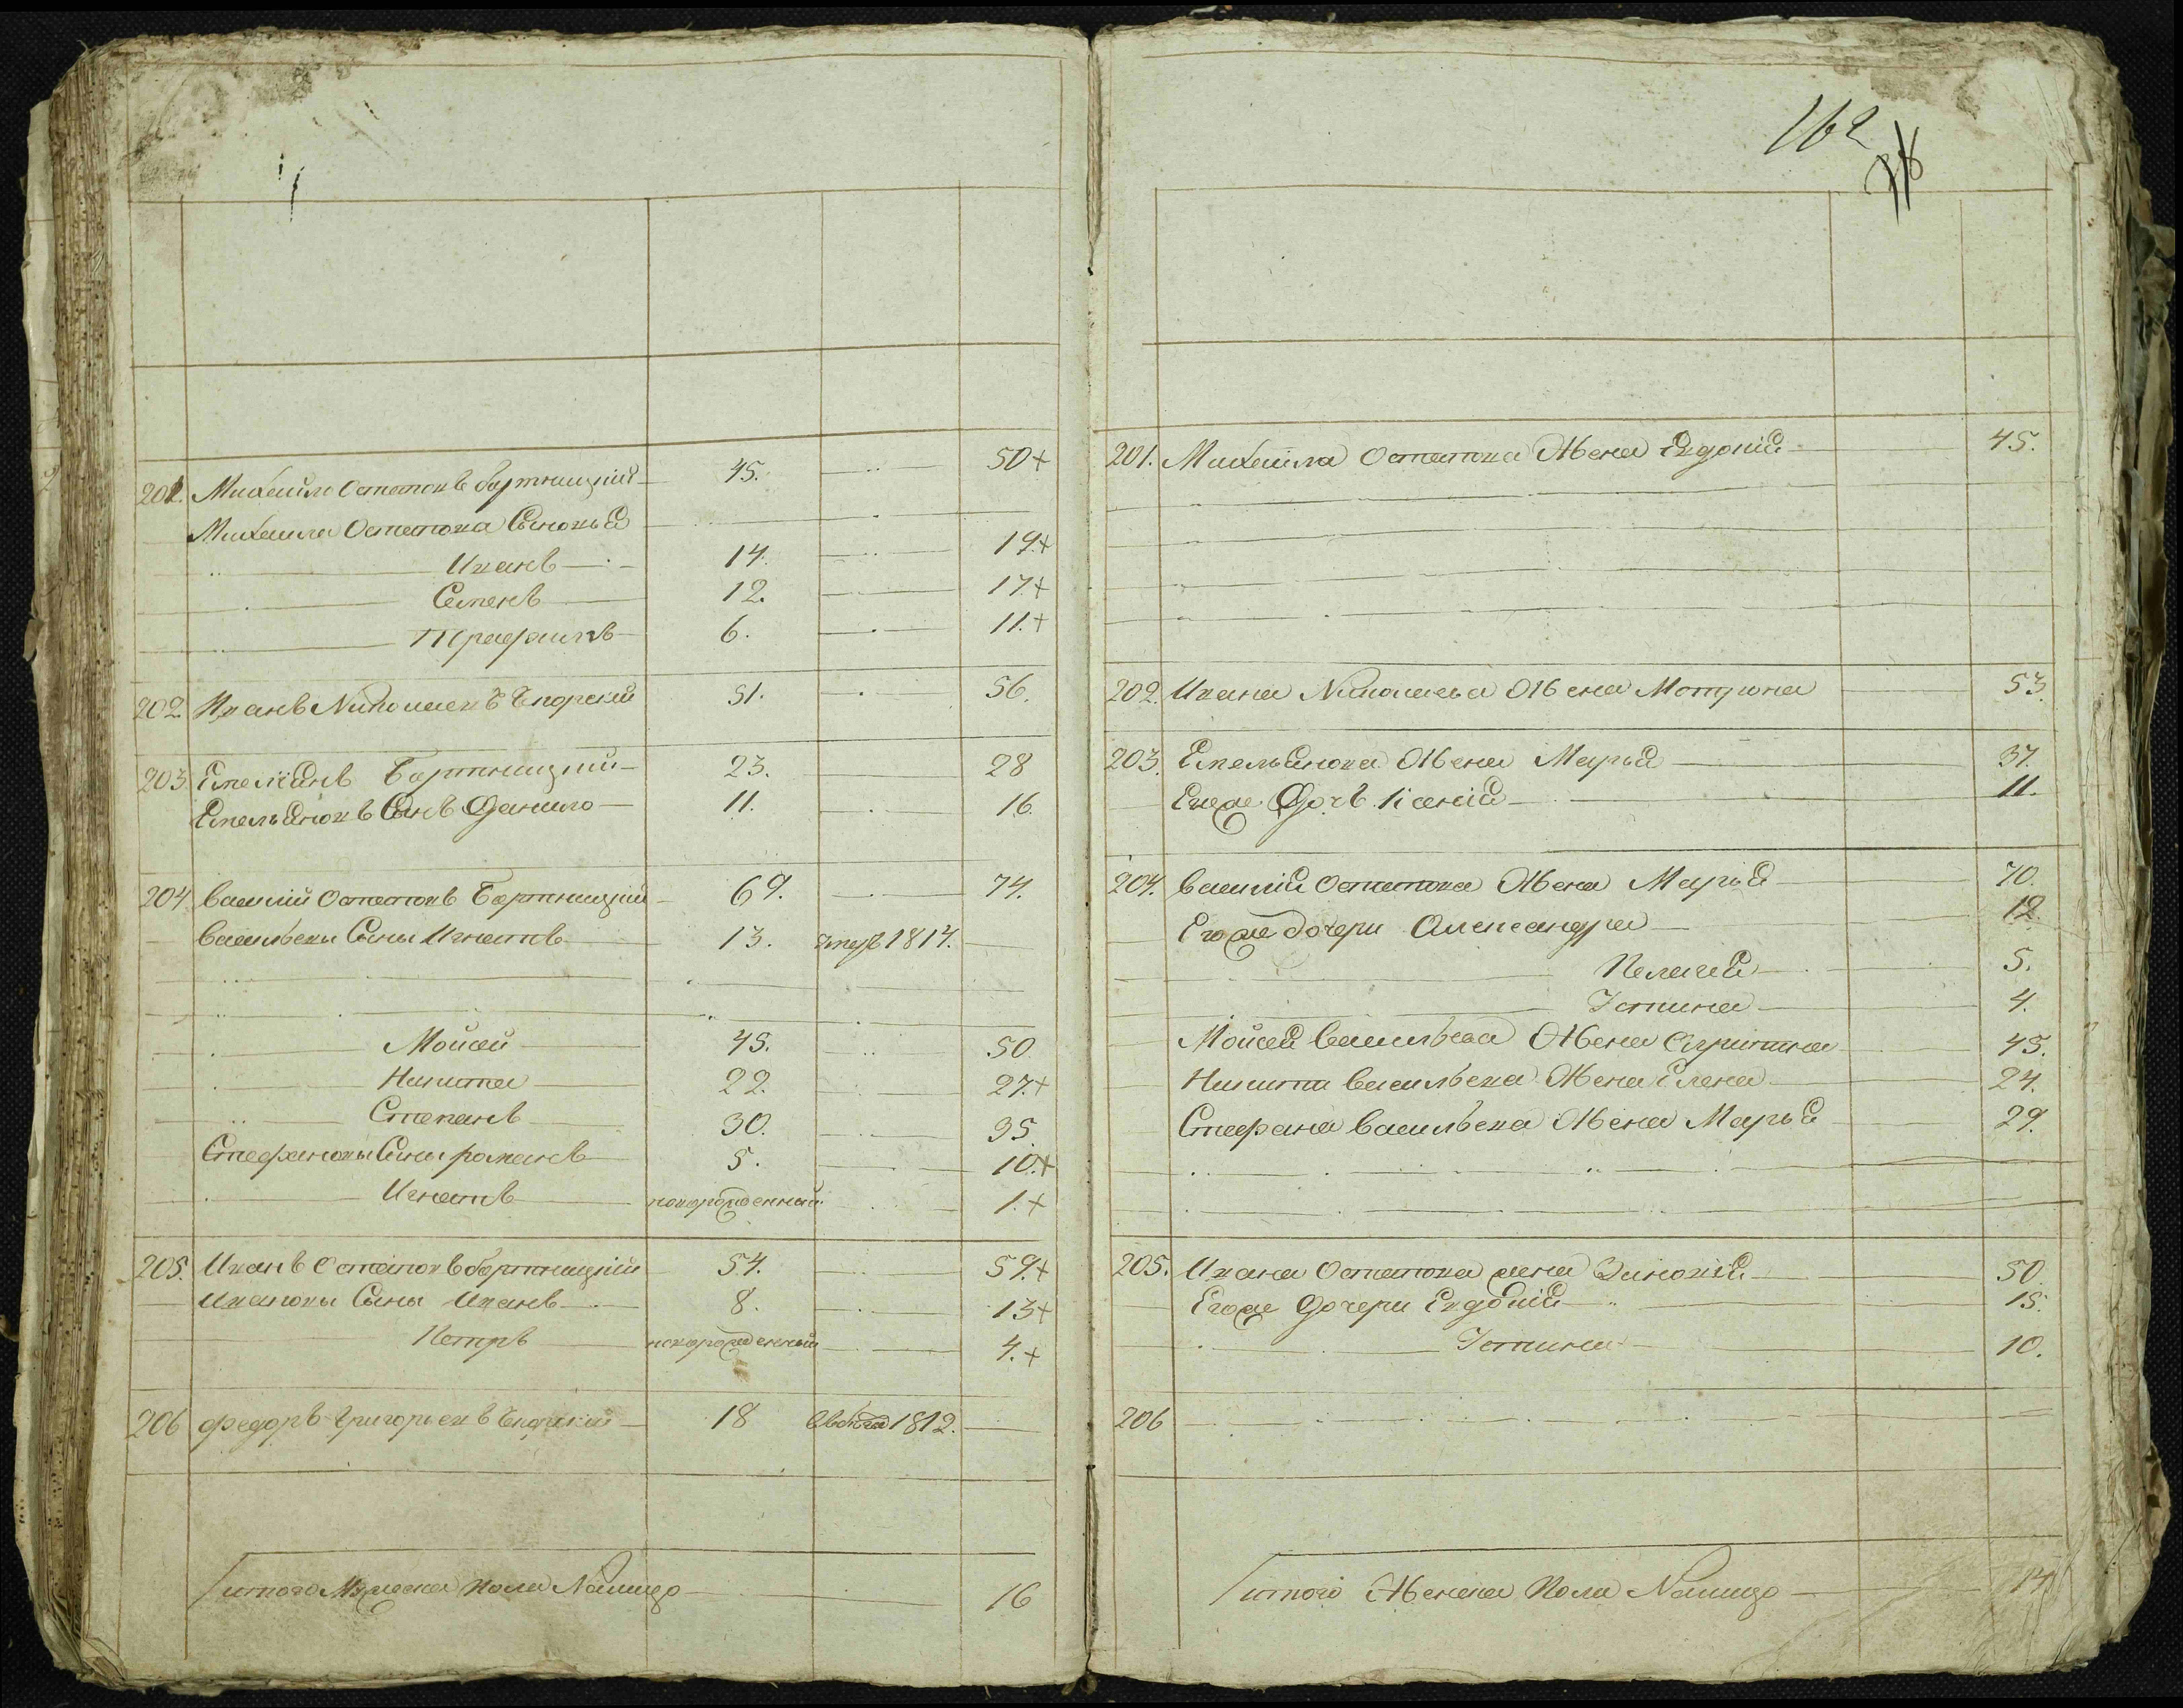 162
201. Михайло Остаповъ Бортницкій 45. 50+
Михаила Остапова Сыновья
Иванъ 14. 19.+
Семенъ 12. 17+
Трафимъ 6. 11.+
202 Иванъ Николаевъ 51. 56.
203 Емеліянъ Бортницкий 23. 28
Емельяновъ Сынъ Данило 11. 16.
204 Василій Остаповъ Бортницкий 69. 74.
Васильевы Сыны Игнатъ 13. умеръ 1814.
Мойсей 45. 50
Никита 22. 27.+
Степанъ 30. 35.
Стефановы Сыны романъ 5. 10.+
Игнатъ новорожденный 1.+
205. Иванъ Остаповъ бортницкій 54. 59.+
Ивановы Сыны Иванъ 8. 13+
Петръ новорожденный 4.+
206 Федоръ Григорьевъ 18 1812.
итого Мужеска пола Налицо 16
201. Михайла Остапова Жена Евдокія 45.
202. Ивана Николаева Жена Мотруна 53.
203. Емельянова Жена Марья 37.
Егоже Дочь Ксенія 11.
204. Василія Остапова Жена Марья 70.
Егоже дочери Александра 12.
Пелагея 5.
Устина 4.
Мойсея Васильева Жена 45.
Никиты Васильева Жена Елена 24.
Стефана Васильева Жена Марья 29.
205. Ивана Остапова жена Зиновія 50.
Егоже Дочери Евдокія 15.
Устина 10.
206
итого Женска Пола Налицо 14